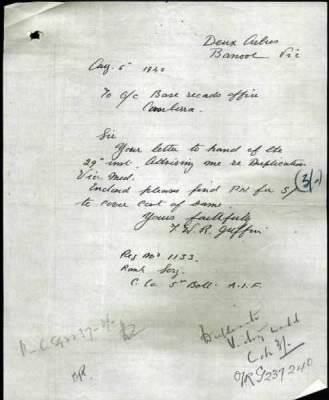 Deux Arbres
Banool Vic
Aug. 6th 1940
To O/c Base records office
Canberra.
Sir
Your letter to hand of the
29th inst. Advising me re Duplication
Vic. Med.
Enclosed please find P.N. for 3/
to cover cost of same.
Yours faithfully
W. R. Griffin
Reg No 1133.
Rank Serg.
C. Co. 5th Batt. A.I.F.
Duplicate
Victory medal